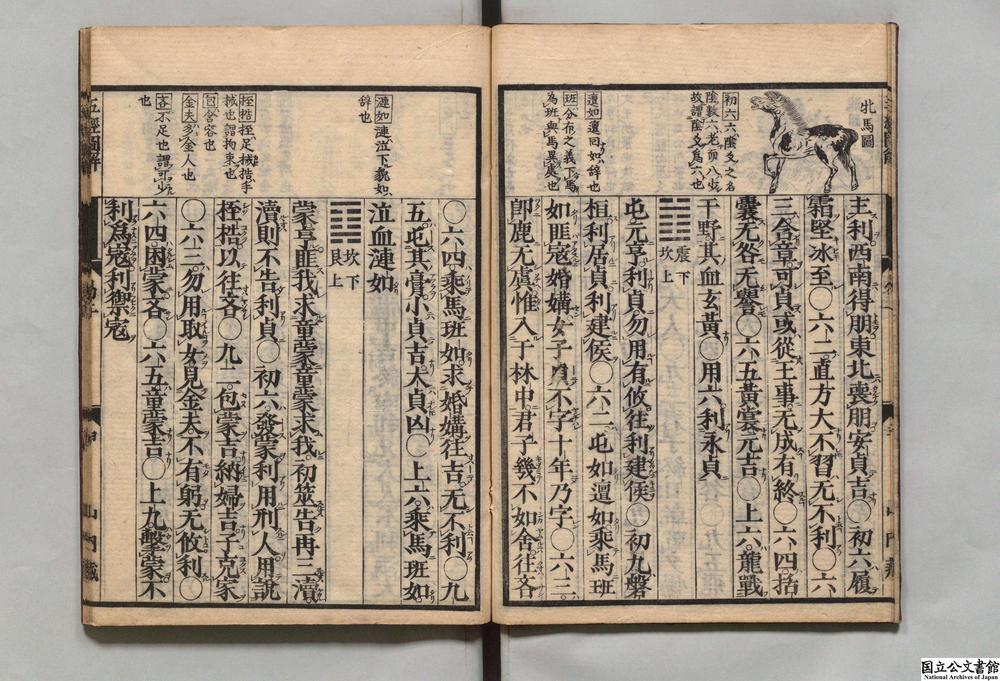 牝馬圖
初六六陰爻之名
陰數六老而八少
故謂陰爻為六也
邅如邅回如辞也
班分布之義下馬
為班與馬異處也
主利西南得朋東北喪朋安貞吉〇初六履
霜堅冰至〇六二直方大不習无不利〇六
三含章可貞或從王事无成有終〇六四括
囊无咎无譽〇六五黃裳元吉〇上六龍戰
于野其血玄黃〇用六利永貞
震下
坎上
屯元亨利貞勿用有攸往利建侯〇初九磐
桓利居貞利建侯〇六二屯如邅如乘馬班
如匪寇婚媾女子貞不字十年乃字〇六三
即鹿无虞惟入于林中君子幾不如舍往吝
漣如漣泣下貌如
辞也
桎梏桎足械梏手
械也謂拘束也
包含容也
金夫多金人也
吝不足也謂可少
也
〇六四乘馬班如求婚媾往吉无不利〇九
五屯其膏小貞吉大貞凶〇上六乘馬班如
泣血漣如
坎下
艮上
蒙亨匪我求童蒙童蒙求我初筮告再三瀆
瀆則不告利貞〇初六發蒙利用刑人用說
桎梏以往吝〇九二包蒙吉納婦吉子克家
〇六三勿用取女見金夫不有躬无攸利〇
六四困蒙吝〇六五童蒙吉〇上九擊蒙不
利為寇利禦寇
五經圖解
山門藏
国立公文書館
National Archives of Japan